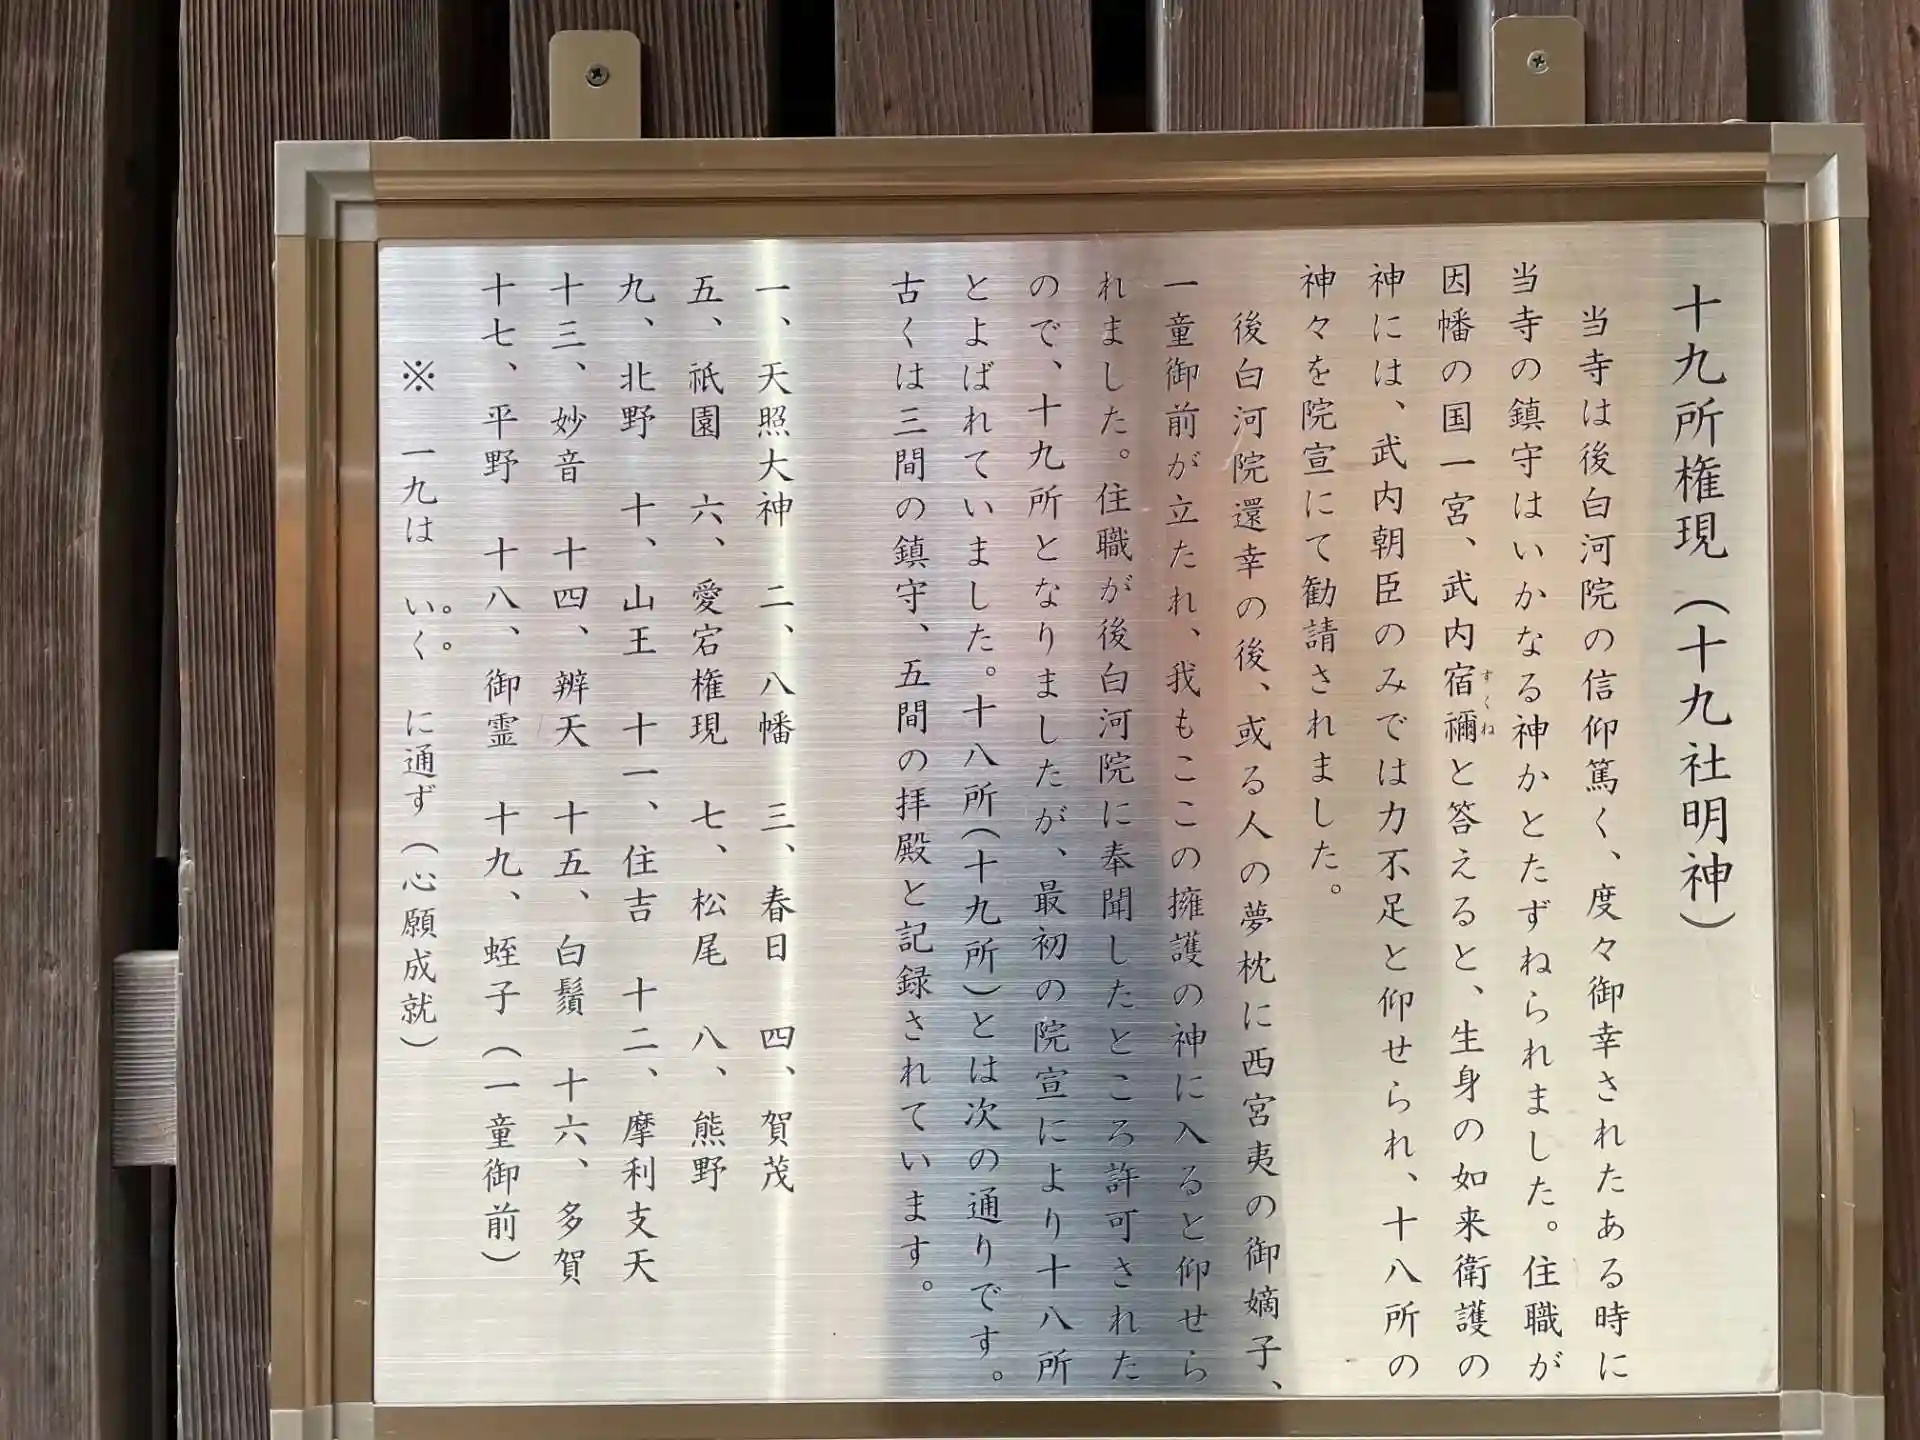 十九所権現（十九社明神）
当寺は後白河院の信仰篤く、度々御幸されたある時に
当寺の鎮守はいかなる神かとたずねられました。住職が
因幡の国一宮、武内宿禰すくねと答えると、生身の如来衛護の
神には、武内朝臣のみでは力不足と仰せられ、十八所の
神々を院宣にて勧請されました。
後白河院還幸の後、或る人の夢枕に西宮夷の御嫡子、
一童御前が立たれ、我もここの擁護の神に入ると仰せら
れました。住職が後白河院に奉聞したところ許可された
ので、十九所となりましたが、最初の院宣により十八所
とよばれていました。十八所（十九所）とは次の通りです。
古くは三間の鎮守、五間の拝殿と記録されています。
一、天照大神 二、八幡 三、春日 四、賀茂
五、祇園 六、愛宕権現 七、松尾 八、熊野
九、北野 十、山王 十一、住吉 十二、摩利支天
十三、妙音 十四、辨天 十五、白鬚 十六、多賀
十七、平野 十八、御霊 十九、蛭子（一童御前）
※ 一九は い。く。 に通ず（心願成就）